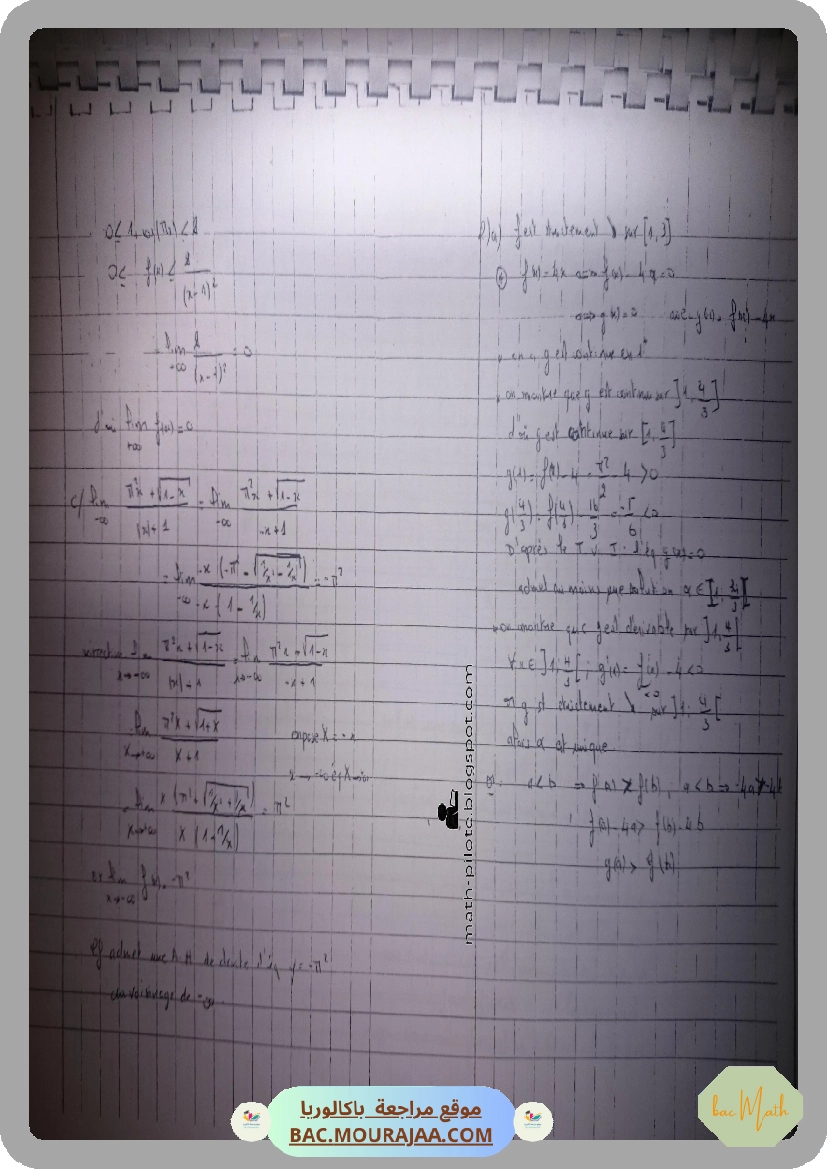 0 ≤ 1+cos(πx) ≤ 2
0 ≤ f(x) ≤ 2/(x-1)²
lim +∞ 2/(x-1)² = 0
d'où lim +∞ f(x) = 0
c/ lim -∞ (π²x + √(1-x))/(|x|+1) = lim -∞ (π²x + √(1-x))/(-x+1)
= lim -∞ -x(-π² - √(1/x² - 1/x))/(-x(1 - 1/x)) = -π²
lim x→-∞ (π²x + √(1-x))/(|x|+1) = lim x→-∞ (π²x + √(1-x))/(-x+1)
lim X→+∞ (π²X + √(1+X))/(X+1) on pose X = -x
lim X→+∞ X(π² + √(1/X² + 1/X))/(X(1+1/X)) = π²
lim x→-∞ f(x) = -π²
ζf admet une A.H de droite d'éq y = -π²
au voisinage de -∞
2) a) f est strictement ↘ sur [1,3]
f(x) = 4x ⟺ f(x) - 4x = 0
⟺ g(x) = 0 avec g(x) = f(x) - 4x
g est continue en 1⁺
on montre que g est continue sur ]1, 4/3]
d'où g est continue sur [1, 4/3]
g(1) = f(1) - 4 = π²/2 - 4 > 0
g(4/3) = f(4/3) - 16/3 = -5/6 < 0
D'après le T.V.I : l'éq g(x) = 0
admet au moins une solution α ∈ ]1, 4/3[
on montre que g est dérivable sur ]1, 4/3[
∀x ∈ ]1, 4/3[ ; g'(x) = f'(x) - 4 < 0
<0
g st strictement ↘ sur ]1, 4/3[
alors α est unique
a < b ⟹ f(a) > f(b), a < b ⟹ -4a > -4b
f(a) - 4a > f(b) - 4b
g(a) > g(b)
math-pilote.blogspot.com
موقع مراجعة باكالوريا
BAC.MOURAJAA.COM
bac Math